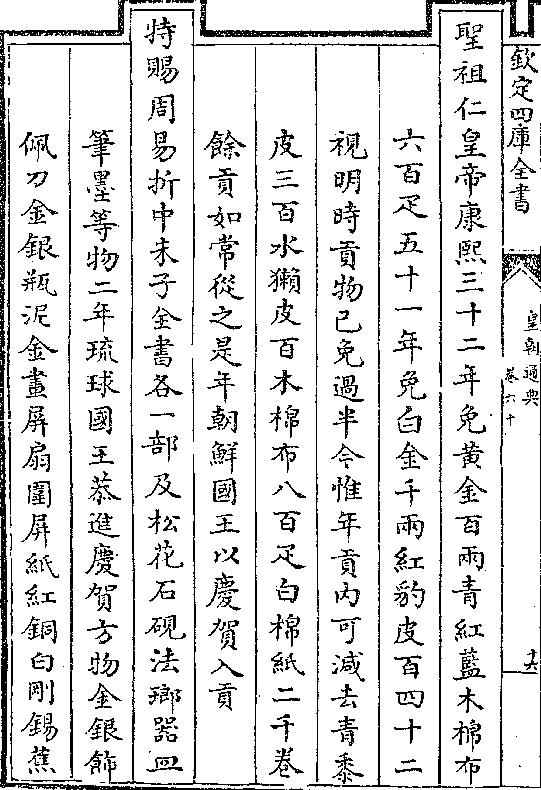 欽定四庫全書
皇朝通典
卷六十
十六
聖祖仁皇帝康熙三十二年免黃金百兩青紅藍木棉布
六百疋五十一年免白金千兩紅豹皮百四十二
視明時貢物已免過半今惟年貢内可減去青黍
皮三百水獺皮百木棉布八百疋白棉紙二千卷
餘貢如常從之是年朝鮮國王以慶賀入貢
特賜周易折中朱子全書各一部及松花石硯法瑯器皿
筆墨等物二年琉球國王恭進慶賀方物金銀飾
佩刀金銀瓶泥金畫屏扇圍屏紙紅銅白剛錫蕉